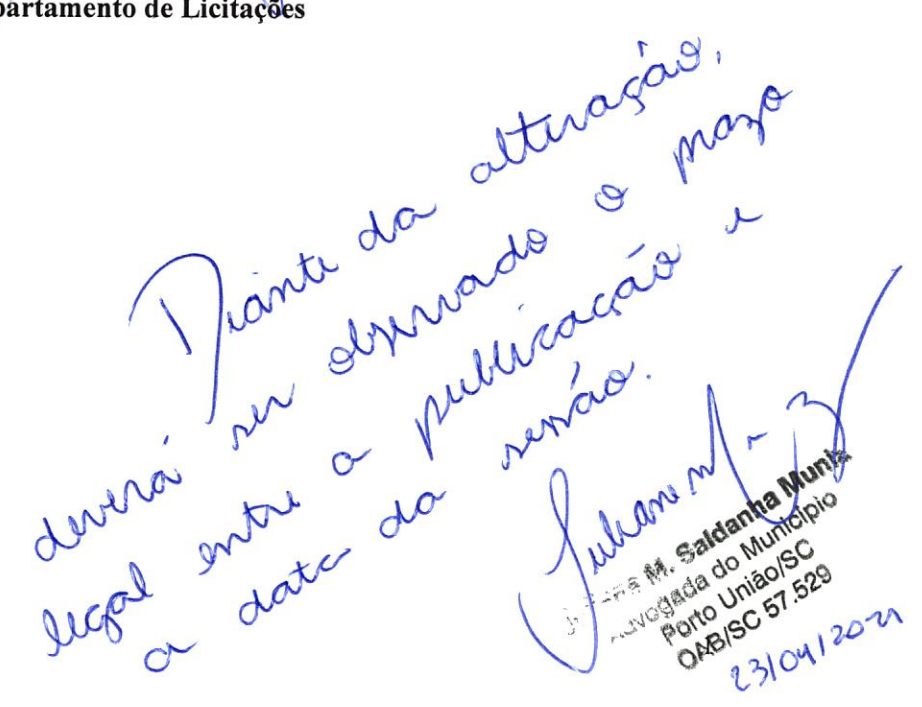 partamento de Licitações
Diante da alteração,
deverá ser observado o prazo
legal entre a publicação e
a data da sessão.
M. Saldanha Muniz
Advogada do Município
Porto União/SC
OAB/SC 57.529
23/04/2021